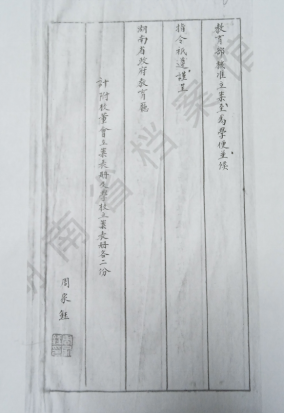 教育部核准立案至為學便並候
指令祇遵謹呈
湖南省政府教育廳
計附校董會立案表冊及學校立案表冊各二份
周
湖南省档案馆